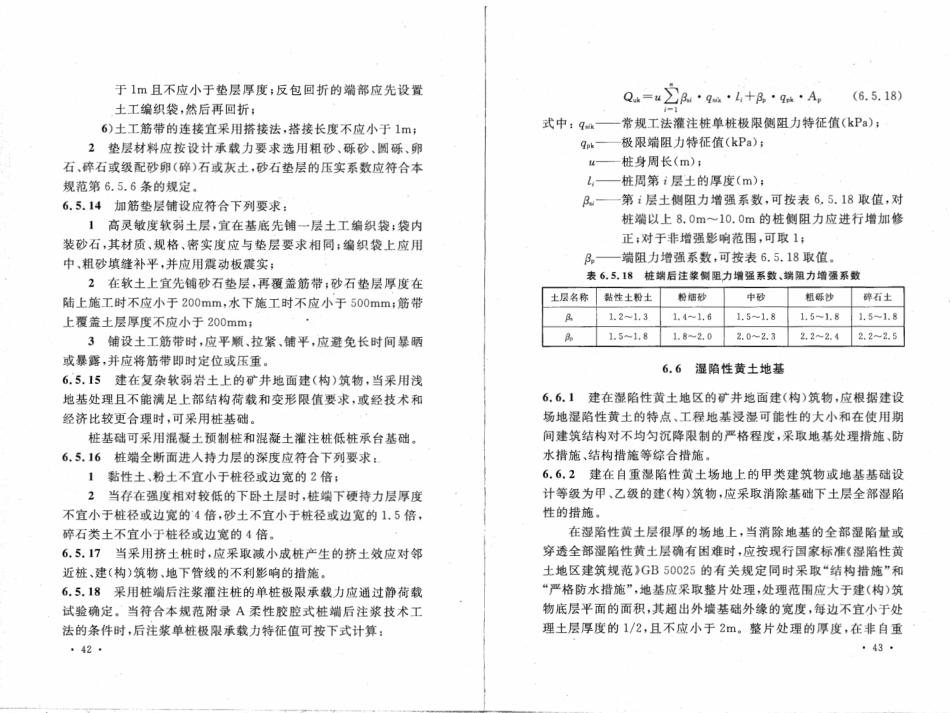 于 1m 且不应小于垫层厚度;反包回折的端部应先设置
土工编织袋,然后再回折;
6)土工筋带的连接宜采用搭接法,搭接长度不应小于 1m;
2 垫层材料应按设计承载力要求选用粗砂、砾砂、圆砾、卵
石、碎石或级配砂卵(碎)石或灰土,砂石垫层的压实系数应符合本
规范第 6.5.6 条的规定。
6.5.14 加筋垫层铺设应符合下列要求:
1 高灵敏度软弱土层,宜在基底先铺一层土工编织袋;袋内
装砂石,其材质、规格、密实度应与垫层要求相同;编织袋上应用
中、粗砂填缝补平,并应用震动板震实;
2 在软土上宜先铺砂石垫层,再覆盖筋带;砂石垫层厚度在
陆上施工时不应小于 200mm,水下施工时不应小于 500mm;筋带
上覆盖土层厚度不应小于 200mm;
3 铺设土工筋带时,应平顺、拉紧、铺平,应避免长时间暴晒
或暴露,并应将筋带即时定位或压重。
6.5.15 建在复杂软弱岩土上的矿井地面建(构)筑物,当采用浅
地基处理且不能满足上部结构荷载和变形限值要求,或经技术和
经济比较更合理时,可采用桩基础。
桩基础可采用混凝土预制桩和混凝土灌注桩低桩承台基础。
6.5.16 桩端全断面进入持力层的深度应符合下列要求:
1 黏性土、粉土不宜小于桩径或边宽的 2 倍;
2 当存在强度相对较低的下卧土层时,桩端下硬持力层厚度
不宜小于桩径或边宽的 4 倍,砂土不宜小于桩径或边宽的 1.5 倍,
碎石类土不宜小于桩径或边宽的 4 倍。
6.5.17 当采用挤土桩时,应采取减小成桩产生的挤土效应对邻
近桩、建(构)筑物、地下管线的不利影响的措施。
6.5.18 采用桩端后注浆灌注桩的单桩极限承载力应通过静荷载
试验确定。当符合本规范附录 A 柔性胶腔式桩端后注浆技术工
法的条件时,后注浆单桩极限承载力特征值可按下式计算:
· 42 ·
Quk=u∑ⁿᵢ₌₁βsi·qsik·lᵢ+βp·qpk·Ap (6.5.18)
式中:qsik——常规工法灌注桩单桩极限侧阻力特征值(kPa);
qpk——极限端阻力特征值(kPa);
u——桩身周长(m);
lᵢ——桩周第 i 层土的厚度(m);
βsi——第 i 层土侧阻力增强系数,可按表 6.5.18 取值,对
桩端以上 8.0m~10.0m 的桩侧阻力应进行增加修
正;对于非增强影响范围,可取 1;
βp——端阻力增强系数,可按表 6.5.18 取值。
表 6.5.18 桩端后注浆侧阻力增强系数、端阻力增强系数
土层名称 黏性土粉土 粉细砂 中砂 粗砾沙 碎石土
βs 1.2~1.3 1.4~1.6 1.5~1.8 1.5~1.8 1.5~1.8
βp 1.5~1.8 1.8~2.0 2.0~2.3 2.2~2.4 2.2~2.5
6.6 湿陷性黄土地基
6.6.1 建在湿陷性黄土地区的矿井地面建(构)筑物,应根据建设
场地湿陷性黄土的特点、工程地基浸湿可能性的大小和在使用期
间建筑结构对不均匀沉降限制的严格程度,采取地基处理措施、防
水措施、结构措施等综合措施。
6.6.2 建在自重湿陷性黄土场地上的甲类建筑物或地基基础设
计等级为甲、乙级的建(构)筑物,应采取消除基础下土层全部湿陷
性的措施。
在湿陷性黄土层很厚的场地上,当消除地基的全部湿陷量或
穿透全部湿陷性黄土层确有困难时,应按现行国家标准《湿陷性黄
土地区建筑规范》GB 50025 的有关规定同时采取“结构措施”和
“严格防水措施”,地基应采取整片处理,处理范围应大于建(构)筑
物底层平面的面积,其超出外墙基础外缘的宽度,每边不宜小于处
理土层厚度的 1/2,且不应小于 2m。整片处理的厚度,在非自重
· 43 ·